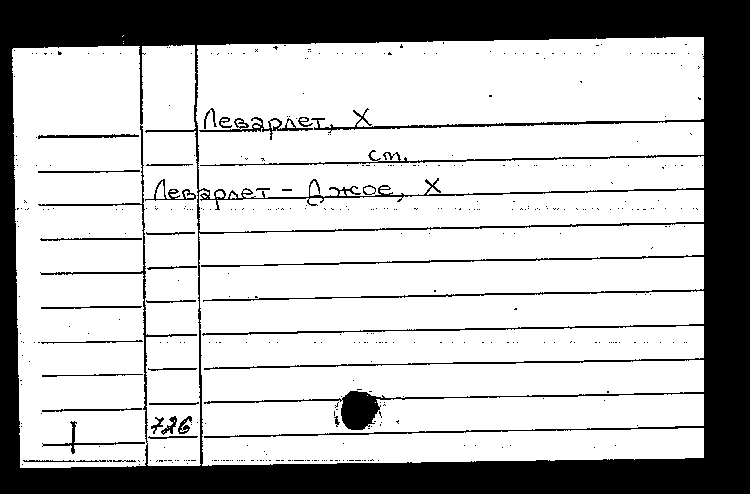 Леварлет, Х
ст.
Леварлет - Джое, Х
726